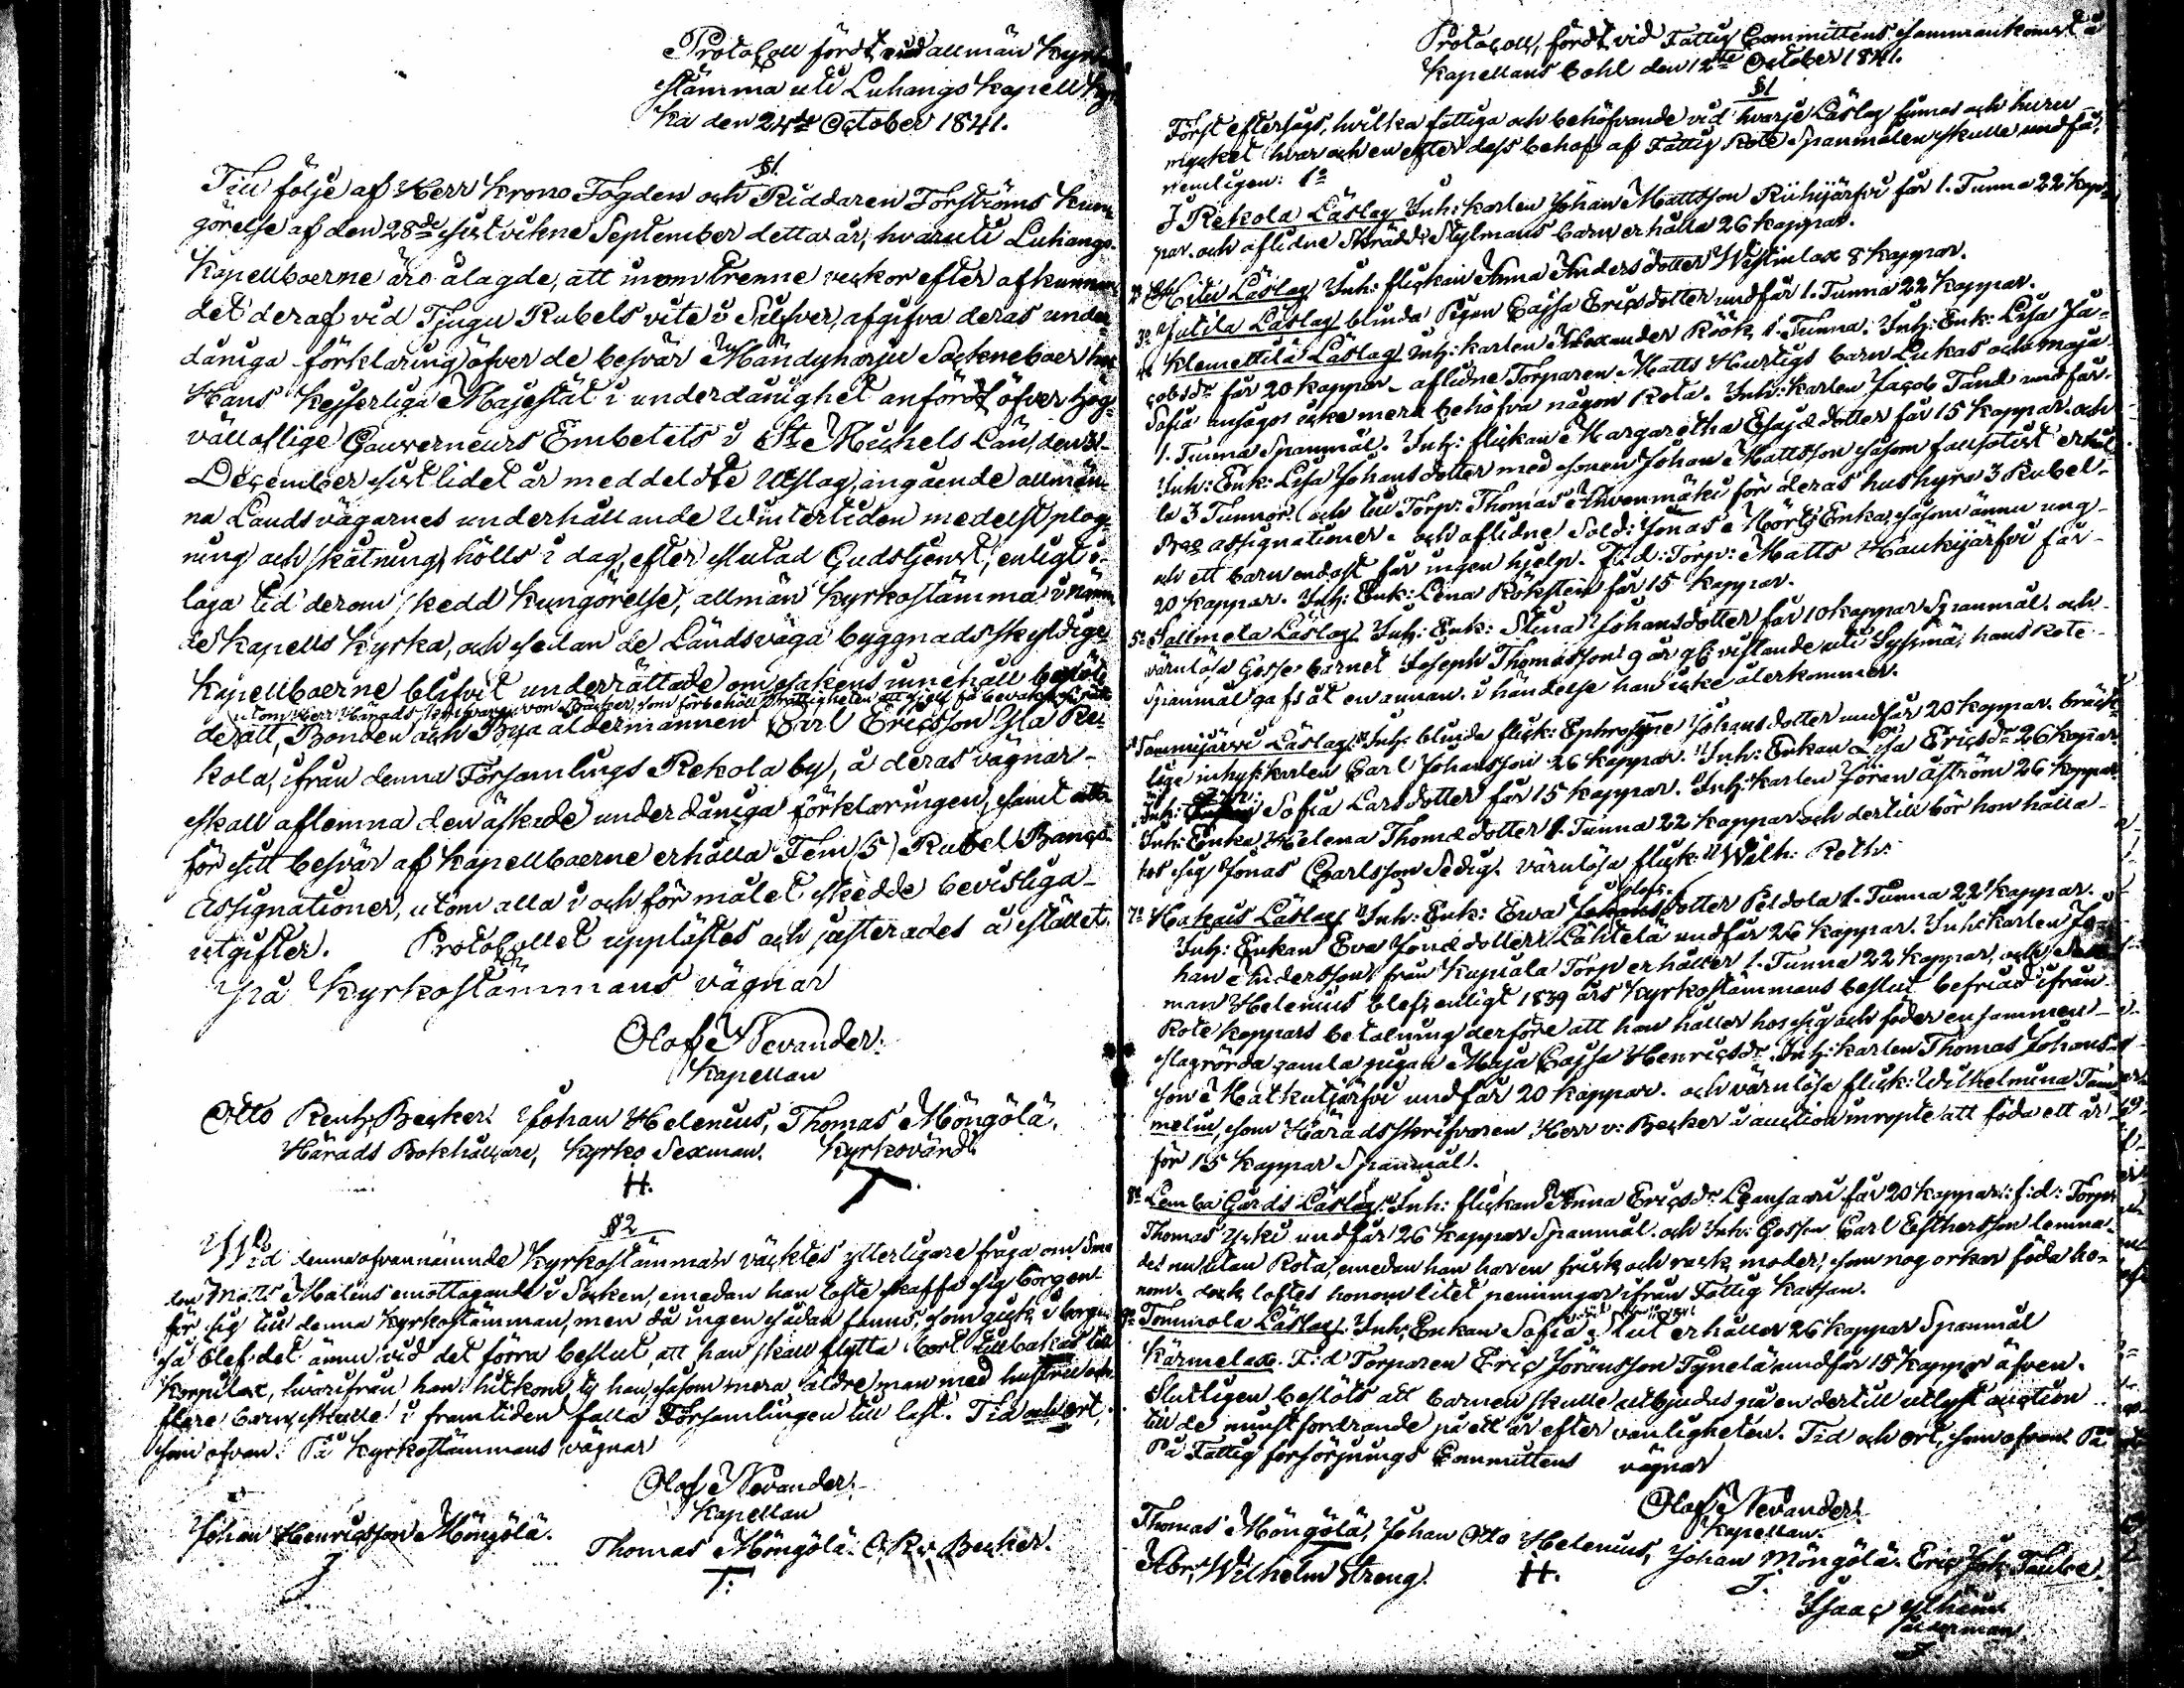 Protokoll fördt vid allmän Kyrko
stämma uti Luhango Kapell Kyr
ka den 24de October 1841.
§1.
Till följe af Herr Krono Fogden och Riddaren Forströms Kun
görelse af den 28de sistvikne September detta år, hvaruti Luhango
Kapellboerne äro ålagde, att inom trenne veckor efter afkunnan
det deraf vid Tjugu Rubels vite i Silfver, afgifva deras under
dåniga förklaring öfver de besvär Mändyharju Sockneboer hos
Hans Kejserliga Majestät i underdånighet anfördt öfver hög
välloflige Gouverneurs Embetets i St Michels Län, den 31
December sistlidet år meddeldte Utslag, angående allmän
na Landsvägarnes underhållande Wintertiden medelst plog
ning och skåtning, hölls i dag, efter slutad Gudstjenst, enligt i
laga tid derom skedd kungörelse, allmän Kyrkostämma i nämn
de Kapells Kyrka, och sedan de Landsväga byggnadsskyldige
Kapellboerne blifvit underrättade om sakens innehåll beslöts
utom Herr Härads skrifvaren von Becker, som förbehöll sig rättigheten att sjelf få bevaka sin rätt
det att, Bonden och Bya åldermannen Carl Ericsson Yla Re
kola, ifrån denna Församlings Rekola by, å deras vägnar
skall aflemna den äskade underdåniga förklaringen, samt att
för sitt besvär af Kapellboerne erhålla Fem (5) Rubel Banco
Assignationer, utom alla i och för målet skedde bevisliga
utgifter. Protokollet upplästes och justerades å stället.
På Kyrkostämmans vägnar
Olof Nevander.
Kapellan
Otto Reinh. Becker. Johan Helenius, Thomas Möngölä,
Härads Bokhållare, Kyrko Sexman. Kyrkovärd.
H. T
§2
Wid denna ofvannämnde Kyrkostämman väcktes ytterligare fråga om Sme
den Matts Malins emottagande i Socken, emedan han lofte skaffa sig borgen
för sig till denna Kyrkostämman, men då ingen sådan fanns, som gick i borgen
så blef det ännu vid det förra beslut, att han skall flytta bort tillbakas till
Korpilax, hvarifrån han hitkom, ty han, såsom mera äldre man med hustru och
flere barn, skulle i framtiden falla Församlingen till last. Tid och ort,
som ofvan. På Kyrkostämmans vägnar
Olof Nevander,
Kapellan
Johan Henricsson Möngölä. Thomas Möngölä. O. R. v. Becker.
J T.
Protocoll, fördt vid Fattig Committens sammankomst å
Kapellans Bohl den 12te October 1841.
§1
Först eftersågs, hvilka fattiga och behöfvande vid hvarje Läslag finnes och huru
mycket hvar och en efter dess behof af Fattig Rote Spanmålen skulle undfå,
nemligen: 1o
I Rekola Läslag Inh: karlen Johan Mattsson Riihijärfvi får 1. Tunna 22 Kap
par. och aflidne Skrädd: Stylmans barn erhålla 26 kappar.
2o Hiitu Läslag Inh: flickan Anna Andersdotter Westinlax 8 kappar.
3o Jutila Läslag blinda Pigan Cajsa Ericsdotter undfår 1. Tunna 22 Kappar.
4o Klemettilä Läslag Inh: karlen Alexander Röök 1. Tunna. Inh: Enk: Lisa Ja
cobsdr får 20 kappar. aflidne Torparen Matts Hurtigs barn Lukas och Maja
Sofia ansågos icke mera behöfva någon Rota. Inh: karlen Jacob Tand undfår
1. Tunna Spanmål. Inh: flickan Margaretha Esajædotter får 15 kappar. och
Inh: Enk: Lisa Johansdotter med sonen Johan Mattsson såsom fallsotist erhål
la 3 Tunnor och till Torp: Thomas Ahvenmäki för deras hushyra 3 Rubel
Bco assignationer. och aflidne Sold: Jonas Hörtz Enka, såsom ännu ung
och ett barn endast får ingen hjelp. F. d. Torp: Matts Haukijärfvi får
20 kappar. Inh: Enk: Lena Rökstein får 15 kappar.
5o Salmela Läslag Inh: Enk: Stina Johansdotter får 10 kappar Spanmål. och
värnlösa Gosse barnet Joseph Thomasson 9 år gl: vistande uti Sysmä, hans Rote
Spanmål gafs åt en annan. i händelse han icke återkommer.
Tammijärvi Läslag. Inh: blinda flick: Ephrosyne Johansdotter undfår 20 kappar. bräck
lige inhys: karlen Carl Johansson 26 kappar. Inh: Enkan Lisa Ericsdr 26 kappar
Inh: Sofia Larsdotter får 15 kappar. Inh: karlen Jöran Åström 26 kappar
Inh: Enka Helena Thomædotter 1. Tunna 22 kappar och dertill bör hon hålla
hos sig Jonas Carlsson Sedig. värnlösa flick: Wilh: Reth:
Olofs.
7o Hakais Läslag Inh: Enk: Ewa dotter Peldola 1. Tunna 22 kappar.
Inh: Enkan Eva Jonædotter Lähtelä undfår 26 kappar. Inh: karlen Jo
han Andersson från Kupiala Torp erhåller 1. Tunna 22 kappar, och Sex
man Helenius blef, enligt 1839 års Kyrkostämmans beslut befriad ifrån
Rote kappars betalning derföre att han håller hos sig och föder en sammen
slagrörda gamla pigan Maja Cajsa Henricsdr. Inh: karlen Thomas Johans
son Matkutjärfvi undfår 20 kappar. och värnlösa flick: Wilhelmina Tam
melin, som Häradsskrifvaren Herr v: Becker i auction inropte att föda ett år
för 15 kappar Spanmål.
8o Lemba Gårds Läslag. Inh: flickan Anna Ericsdr Leansaari får 20 kappar. f: d: Torp:
Thomas Yski undfår 26 kappar Spanmål. och Inh: Gossen Carl Esthersson lemna
des nu utan Rota, emedan han har en frisk och rask moder, som nog orkar föda ho
nom. dock loftes honom litet penningar ifrån Fattig Kassan.
9o Tommola Läslag. Inh: Enkan Sofia Slut erhåller 26 kappar Spanmål
Kärmelax. F: d Torparen Eric Jöransson Tynelä undfår 15 kappar äfven.
Slutligen beslöts att barnen skulle utbjudas på en dertill utlyst auction
till de minst fordrande på ett år efter vanligheten. Tid och ort, som ofvan. På
På Fattig försörjnings Committens vägnar
Olof Nevander.
Kapellan.
Thomas Möngölä, Johan Otto Helenius, Johan Möngölä. Eric Joh: Taube,
Abr: Wilhelm Streng. H. J.
Isaac